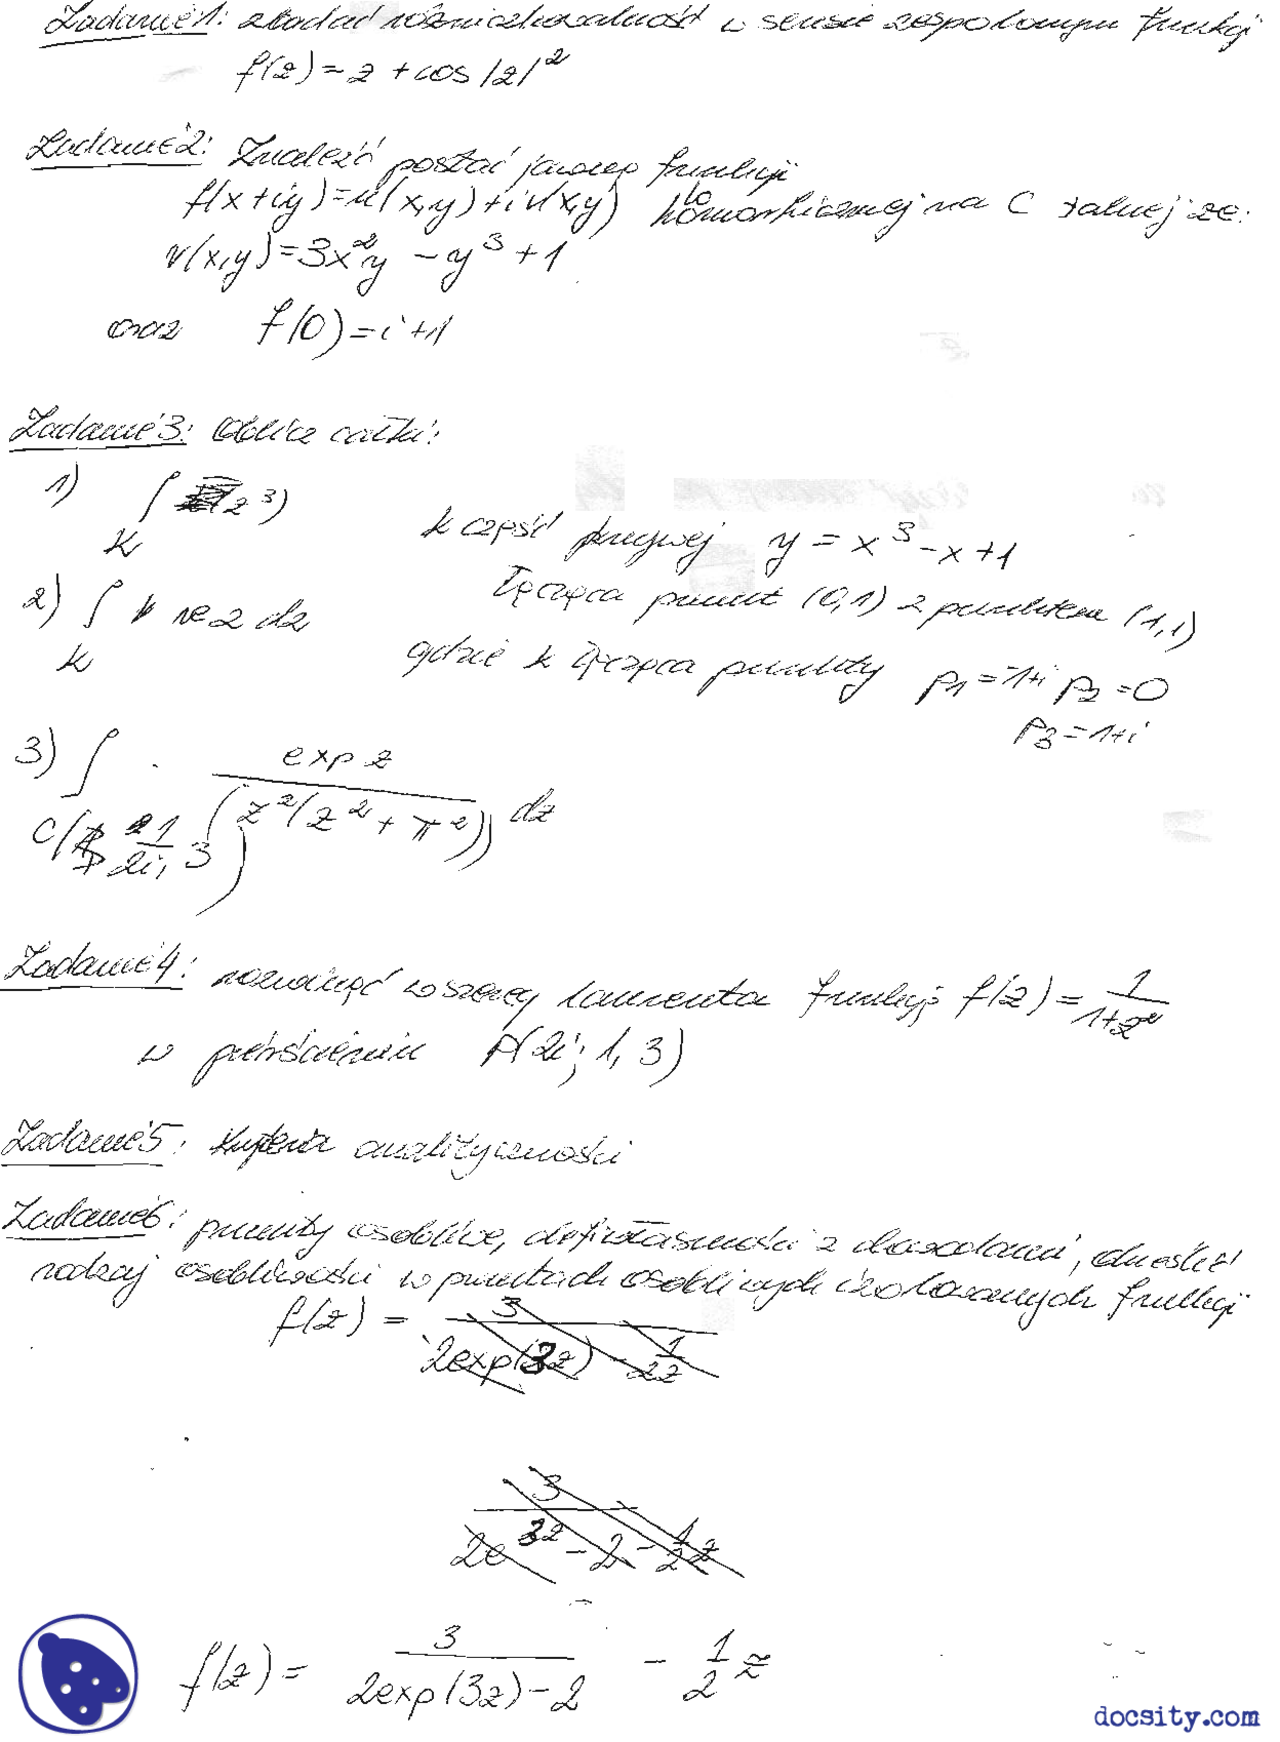 Zadanie 1: zbadać różniczkowalność w sensie zespolonym funkcji
f(z) = z + cos|z|²
Zadanie 2: Znaleźć postać jawną funkcji
f(x+iy) = u(x,y) + iv(x,y) holomorficznej na C takiej że:
v(x,y) = 3x²y - y³ + 1
oraz f(0) = i+1
Zadanie 3: Oblicz całki:
1) ∫ z³)
K
k część krzywej y = x³ - x + 1
łącząca punkt (0,1) z punktem (1,1)
2) ∫ re z dz
k
gdzie k łącząca punkty p1 = -1+i p2 = 0
p3 = 1+i
3) ∫ exp z
(z²(z² + π²)) dz
C( 1/2i, 3)
Zadanie 4: rozwinąć w szereg Laurenta funkcję f(z) = 1/(1+z²)
w pierścieniu P(2i; 1, 3)
Zadanie 5: kryteria analityczności
Zadanie 6: punkty osobliwe, def i własności z dowodami, określić
rodzaj osobliwości w punktach osobliwych izolowanych funkcji
f(z) = 3
2exp(3z) - 1/2z
3
2e^3z - 2 - 1/2 z
f(z) = 3/(2exp(3z) - 2) - 1/2 z
docsity.com